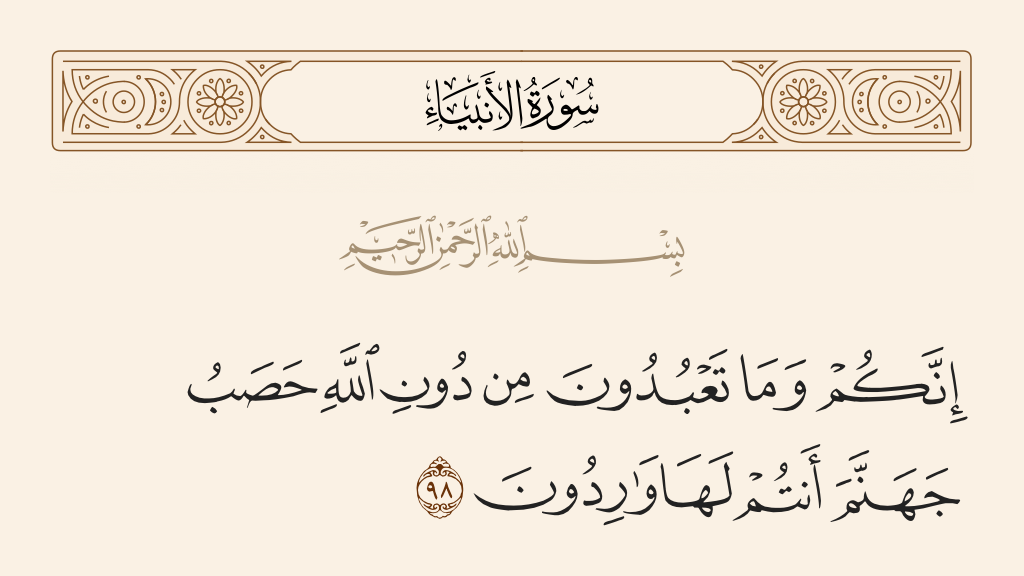 سُورَةُ الأَنبِيَاءِ
بِسْمِ ٱللَّهِ ٱلرَّحْمَٰنِ ٱلرَّحِيمِ
إِنَّكُمْ وَمَا تَعْبُدُونَ مِن دُونِ ٱللَّهِ حَصَبُ
جَهَنَّمَ أَنتُمْ لَهَا وَٰرِدُونَ ٩٨